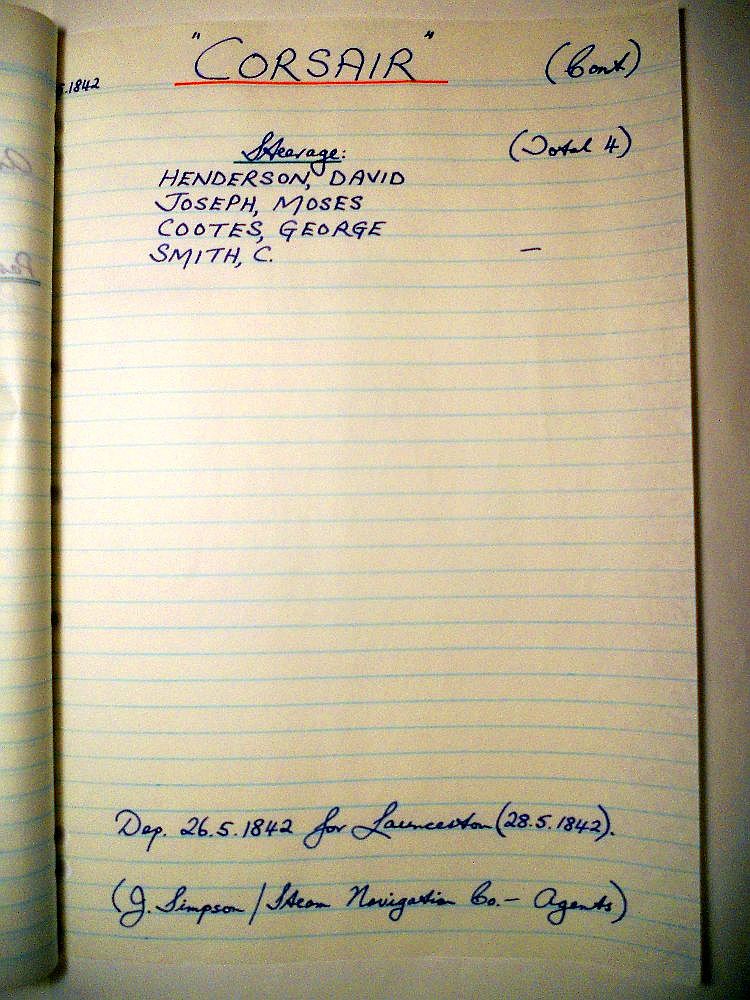 "CORSAIR" (Cont.)
5.1842
Steerage: (Total 4)
HENDERSON, DAVID
JOSEPH, MOSES
COOTES, GEORGE
SMITH, C. —
Dep. 26.5.1842 for Launceston (28.5.1842).
(J. Simpson / Steam Navigation Co. - Agents)